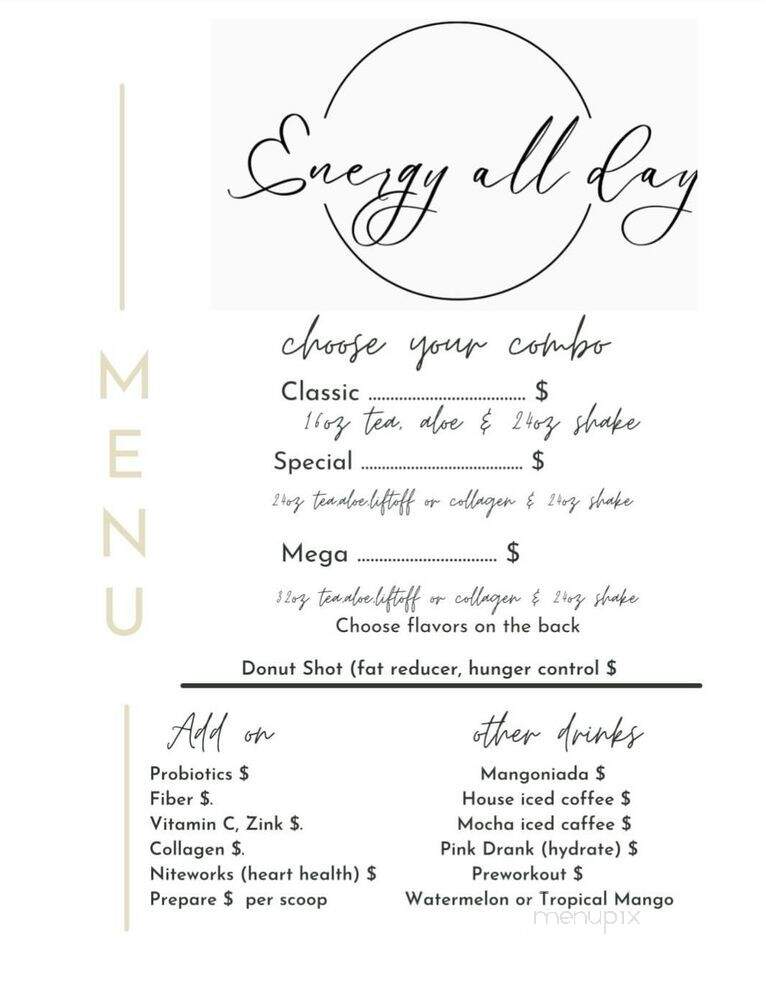 Energy all day
MENU
choose your combo
Classic ........................................ $
16oz tea, aloe & 24oz shake
Special ......................................... $
24oz tea.aloe.liftoff or collagen & 24oz shake
Mega ................................... $
32oz tea.aloe.liftoff or collagen & 24oz shake
Choose flavors on the back
Donut Shot (fat reducer, hunger control $
Add on
Probiotics $
Fiber $.
Vitamin C, Zink $.
Collagen $.
Niteworks (heart health) $
Prepare $ per scoop
other drinks
Mangoniada $
House iced coffee $
Mocha iced caffee $
Pink Drank (hydrate) $
Preworkout $
Watermelon or Tropical Mango
menupix